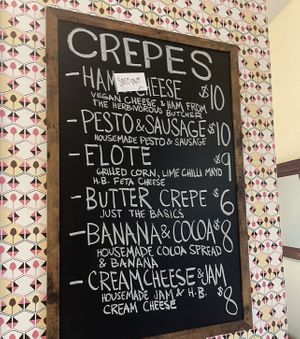 CREPES
- HAM & CHEESE $10
SOLD OUT
VEGAN CHEESE & HAM FROM
THE HERBIVOROUS BUTCHER
- PESTO & SAUSAGE $10
HOUSEMADE PESTO & SAUSAGE
- ELOTE $9
GRILLED CORN, LIME CHILLI MAYO
H.B. FETA CHEESE
- BUTTER CREPE $6
JUST THE BASICS
- BANANA & COCOA $8
HOUSEMADE COCOA SPREAD
& BANANA
- CREAMCHEESE & JAM
HOUSEMADE JAM & H.B. $8
CREAM CHEESE